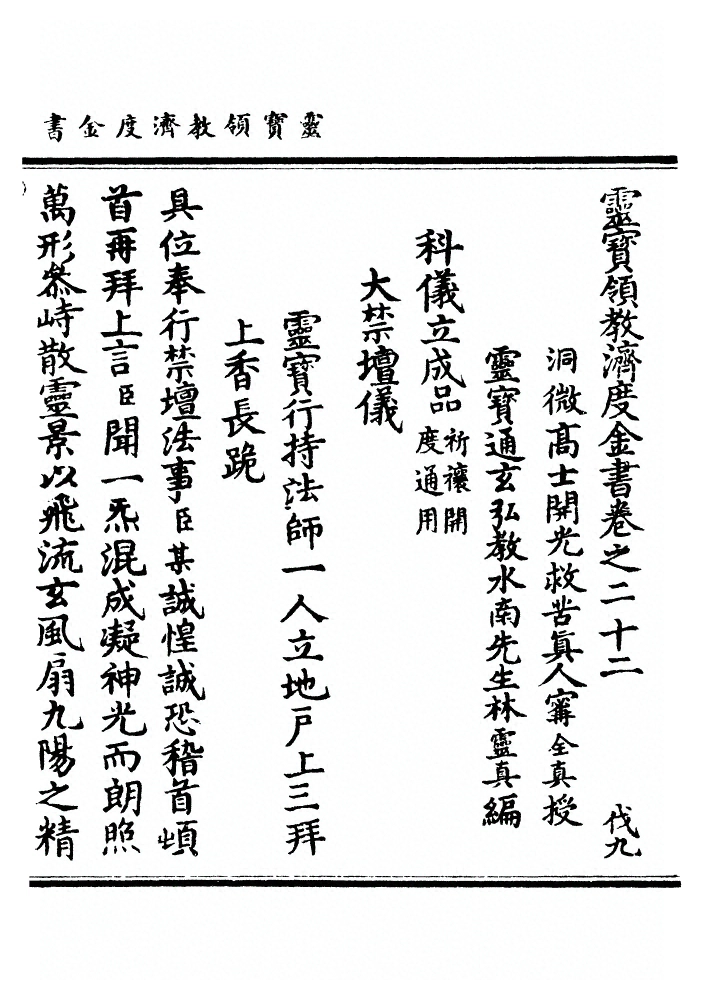 靈寶領教濟度金書
靈寶領教濟度金書卷之二十二 伐九
洞微高士開光救苦眞人甯全真授
靈寶通玄弘教水南先生林靈真編
科儀立成品祈禳開度通用
大禁壇儀
靈寶行持法師一人立地戸上三拜
上香長跪
具位奉行禁壇法事臣某誠惶誠恐稽首頓
首再拜上言臣聞一炁混成凝神光而朗照
萬形叅峙散靈景以飛流玄風扇九陽之精